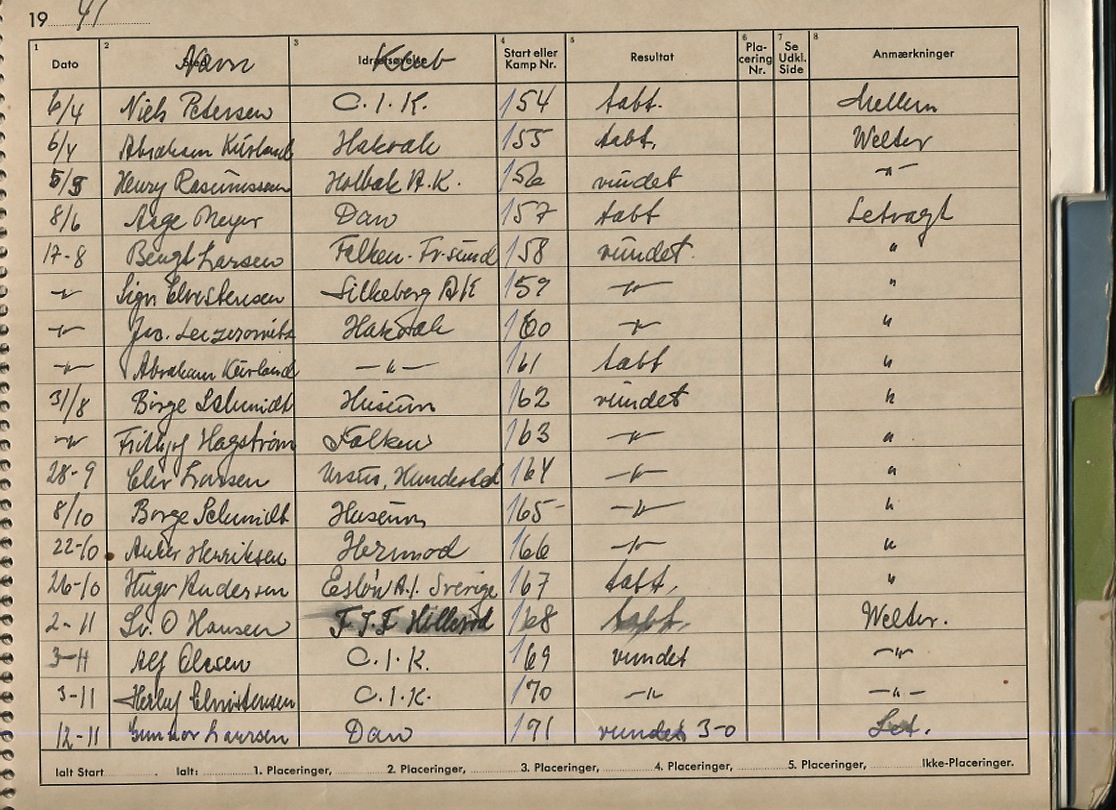 19 41
1 Dato 2 Navn 3 Klub 4 Start eller Kamp Nr. 5 Resultat 6 Pla-cering Nr. 7 Se Udkl. Side 8 Anmærkninger
6/4 Niels Petersen C.I.K. 154 tabt. Mellem
6/4 Abraham Kurland Hakoah 155 tabt. Welter
5/5 Henry Rasmussen Holbæk A.K. 156 vundet -"-
8/6 Aage Meyer Dan 157 tabt Letvægt
17-8 Bengt Larsen Falken-Fr.sund 158 vundet "
-"- Sign Christensen Silkeborg AK 159 -"- "
-"- Jac. Leizerovitz Hakoah 160 -"- "
-"- Abraham Kurland -"- 161 tabt "
31/8 Børge Schmidt Husum 162 vundet "
-"- Frithjof Hagstrøm Falken 163 -"- "
28-9 Larsen Ursus, Hundested 164 -"- "
8/10 Børge Schmidt Husum 165 -"- "
22-10 Anker Henriksen Hermod 166 -"- "
26-10 Hugo Andersen Eslöv A.I. Sverige 167 tabt. "
2-11 Sv. O Hansen F.I.F Hillerød 168 tabt. Welter.
3-11 Alf Olesen C.I.K. 169 vundet -"-
3-11 Herluf Christensen C.I.K. 170 -"- -"-
12-11 Gunnar Laursen Dan 171 vundet 3-0 Let.
Ialt Start Ialt: 1. Placeringer, 2. Placeringer, 3. Placeringer, 4. Placeringer, 5. Placeringer, Ikke-Placeringer.